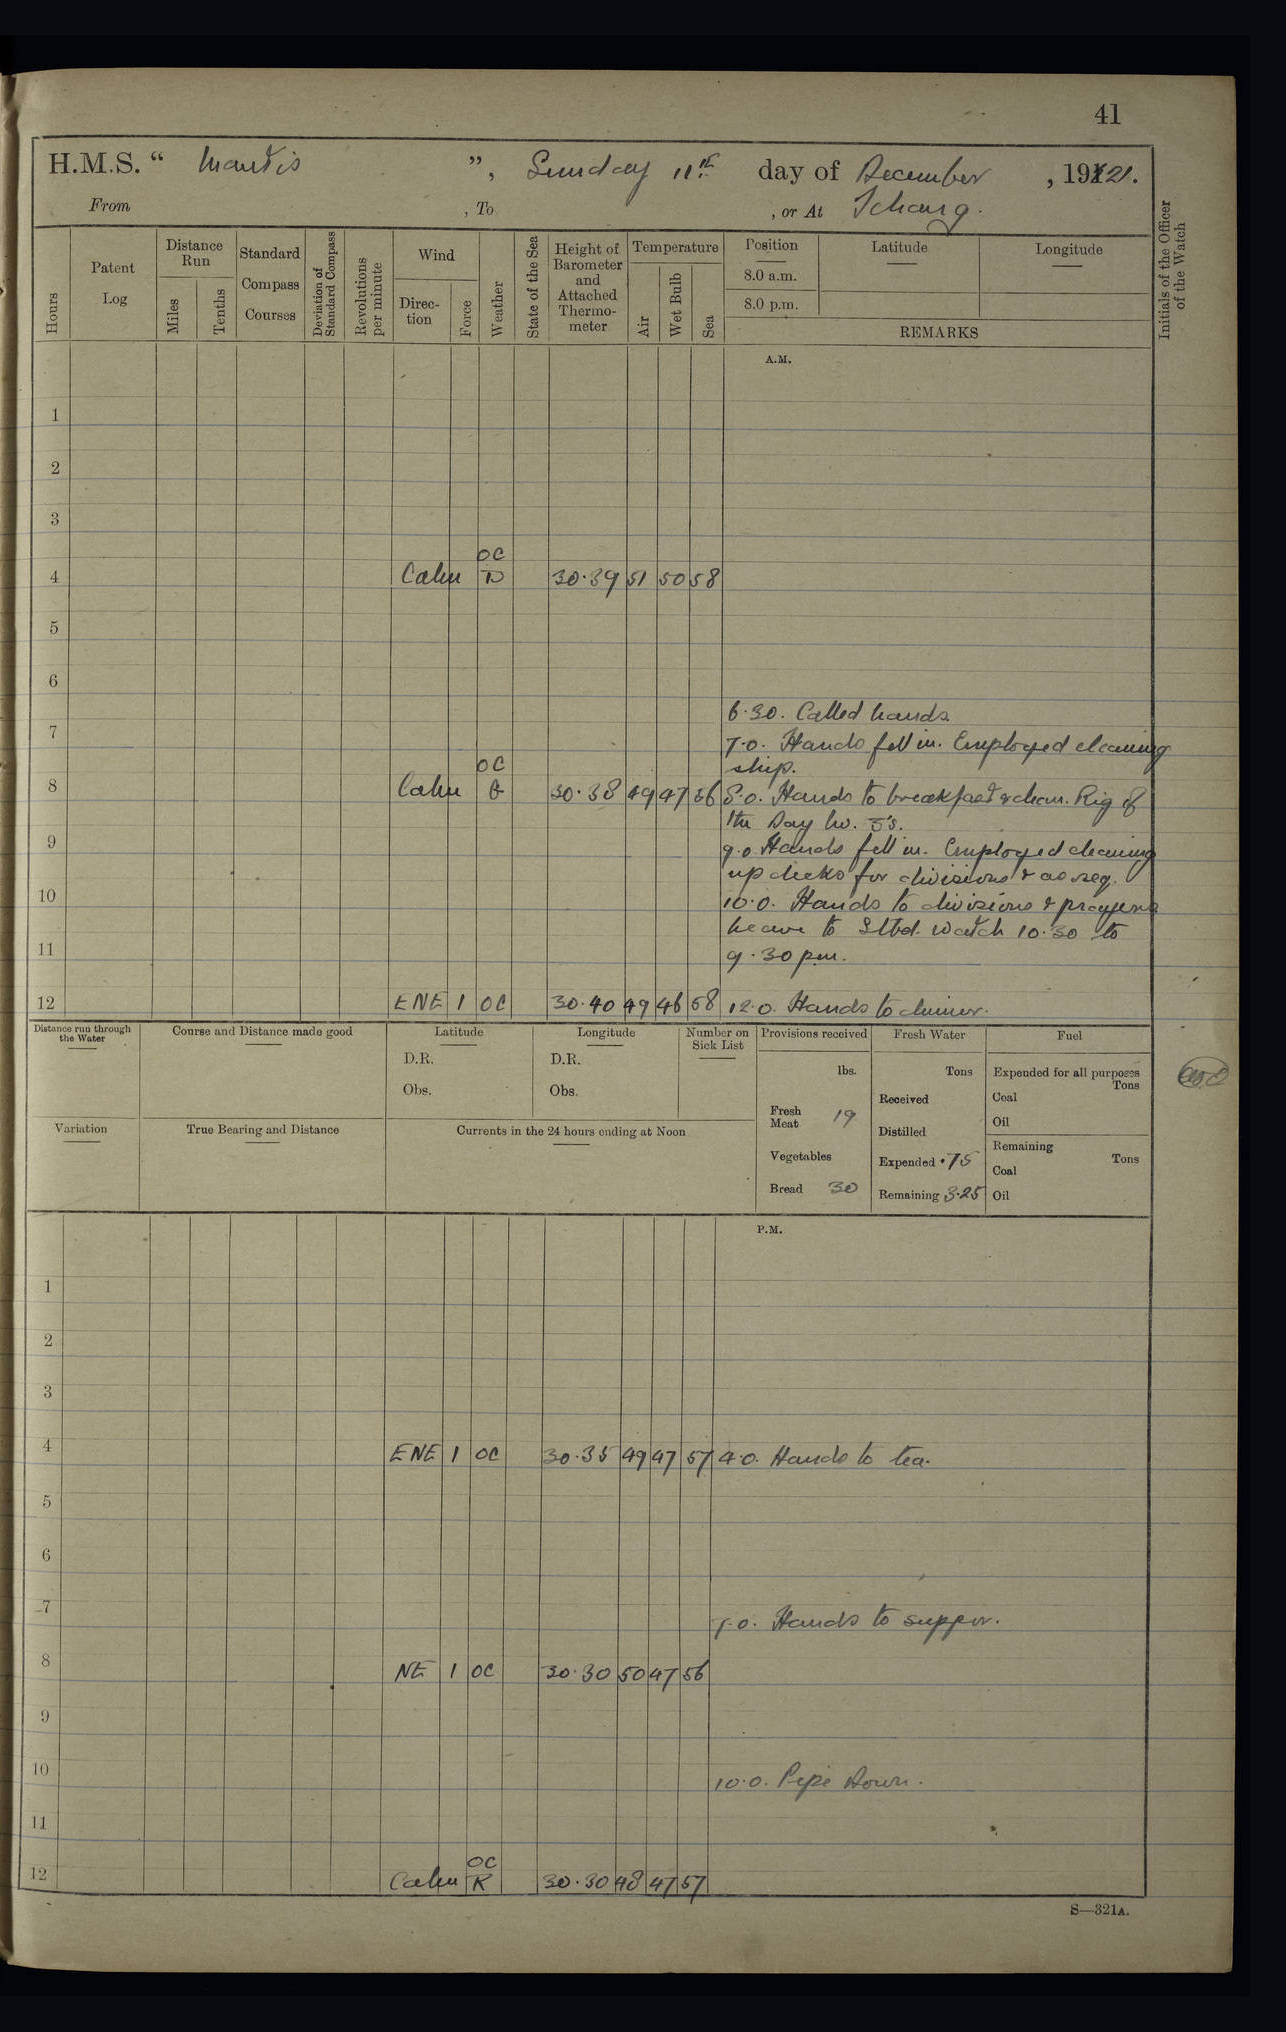 41
H.M.S. “ Mantis ”, Sunday 11th day of December , 1921.
From , To , or At Ichang.
Hours
Patent Log
Distance Run
Miles
Tenths
Standard Compass Courses
Deviation of Standard Compass
Revolutions per minute
Wind
Direction
Force
Weather
State of the Sea
Height of Barometer and Attached Thermometer
Temperature
Air
Wet Bulb
Sea
Position
8.0 a.m.
8.0 p.m.
Latitude
Longitude
REMARKS
Initials of the Officer of the Watch
A.M.
1
2
3
OC
4 Calm D 30.39 51 50 58
5
6
6.30. Called hands
7 7.0. Hands fell in. Employed cleaning
OC ship.
8 Calm 30.38 49 47 56 8.0. Hands to breakfast & clean. Rig of
the Day No. 5's.
9 9.0 Hands fell in. Employed cleaning
up decks for divisions & as req.
10 10.0. Hands to divisions & prayers
Leave to Stbd. Watch 10.30 to
11 9.30 pm.
12 ENE 1 OC 30.40 49 46 58 12.0. Hands to dinner.
Distance run through the Water
Course and Distance made good
Latitude
D.R.
Obs.
Longitude
D.R.
Obs.
Number on Sick List
Provisions received
lbs.
Fresh Meat 19
Vegetables
Bread 30
Fresh Water
Tons
Received
Distilled
Expended .75
Remaining 3.25
Fuel
Expended for all purposes
Tons
Coal
Oil
Remaining
Tons
Coal
Oil
Variation
True Bearing and Distance
Currents in the 24 hours ending at Noon
P.M.
1
2
3
4 ENE 1 OC 30.35 49 47 57 4.0. Hands to tea.
5
6
7 7.0. Hands to supper.
8 NE 1 OC 30.30 50 47 56
9
10 10.0. Pipe Down.
11
OC
12 Calm R 30.30 48 47 57
S—321A.